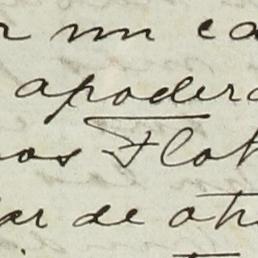 r un ca
apodera
nos Flot
ar de otr